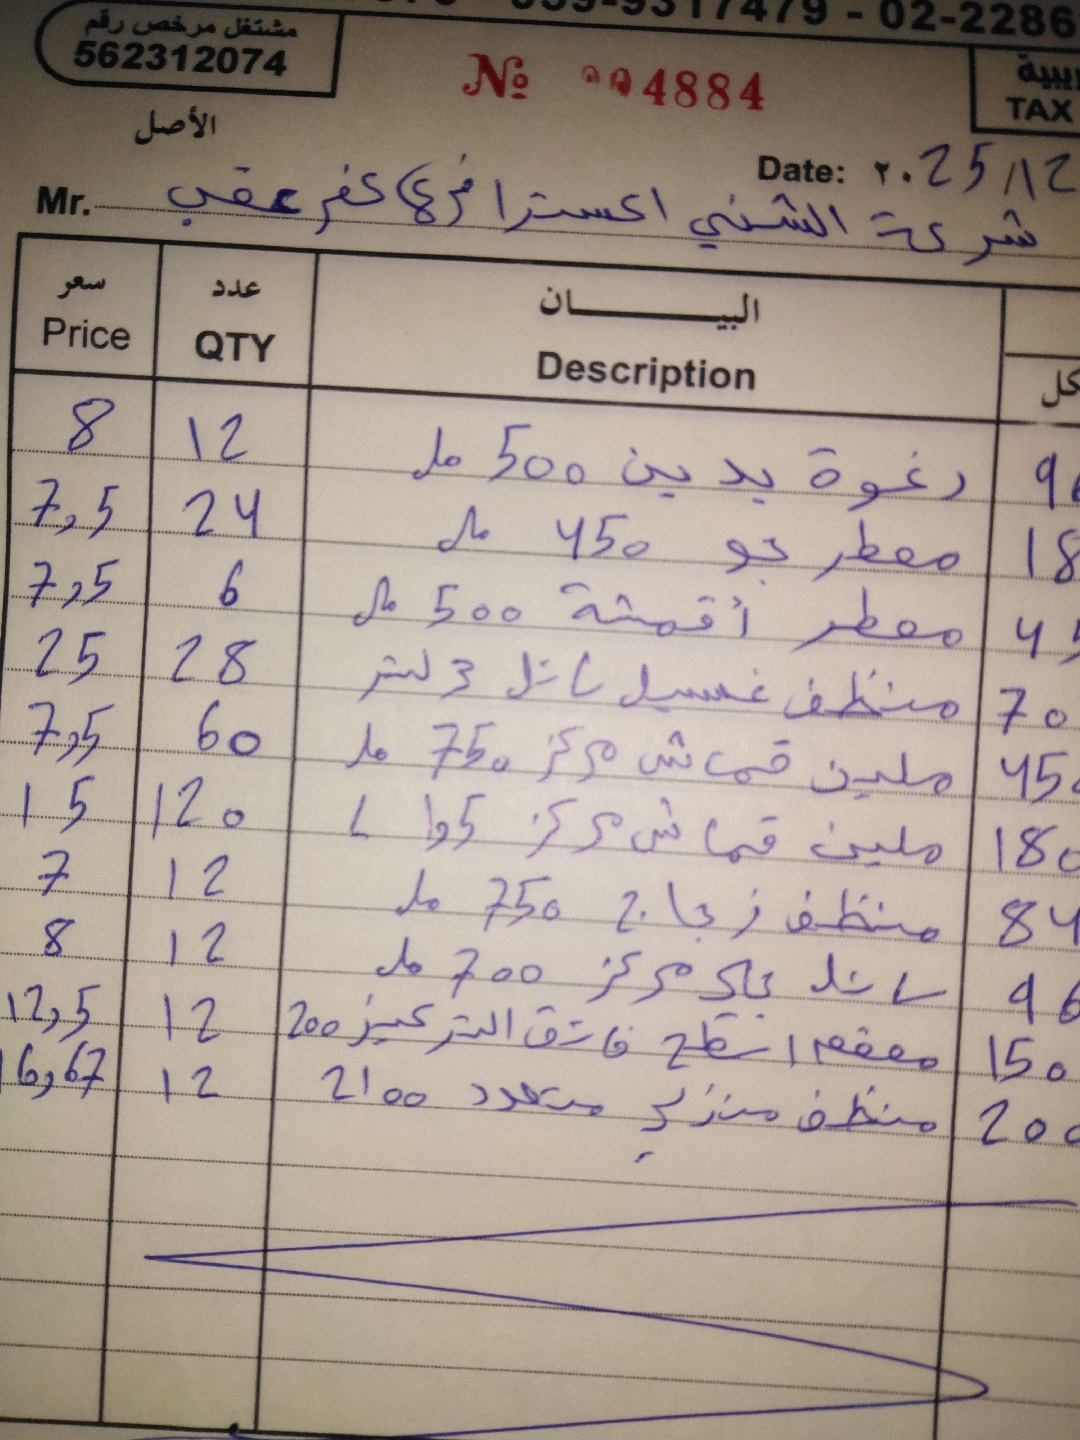 059-9317479 - 02-2286
مشتغل مرخص رقم
562312074
№ 004884
TAX
الأصل
Date: ٢٠25/12
Mr. شركة الشني اكسترا فرع كفر عقب
سعر عدد البيـــــــان كل
Price QTY Description
8 12 رغوة يدين 500 مل 96
7,5 24 معطر جو 450 مل 18
7,5 6 معطر أقمشة 500 مل 45
25 28 منظف غسيل سائل 3 لتر 70
7,5 60 ملين قماش مركز 750 مل 450
15 120 ملين قماش مركز 1,5 ل 180
7 12 منظف زجاج 750 مل 84
8 12 سائل جلي مركز 700 مل 96
12,5 12 معقم اسطح فائق التركيز 200 150
16,67 12 منظف منزلي متعدد 2100 200